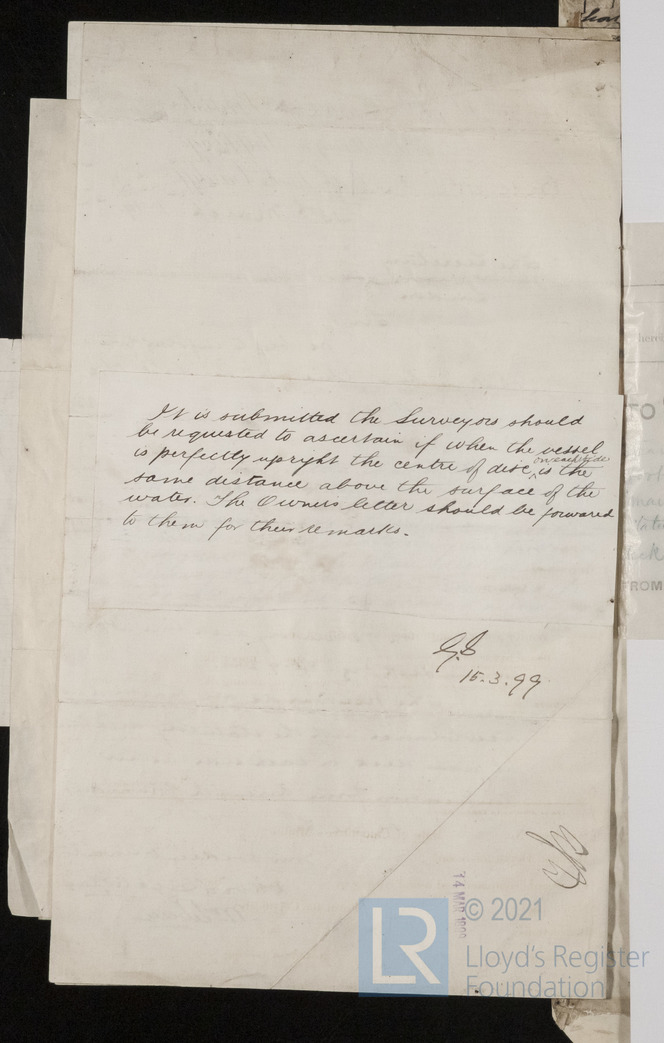 It is submitted the Surveyors should
be requested to ascertain if when the vessel
is perfectly upright the centre of disc on each side is the
same distance above the surface of the
water. The Owners letter should be forwared
to them for their remarks.
15.3.99
14 MAR 1899
© 2021
LR
Lloyd's Register
Foundation
TO
FROM